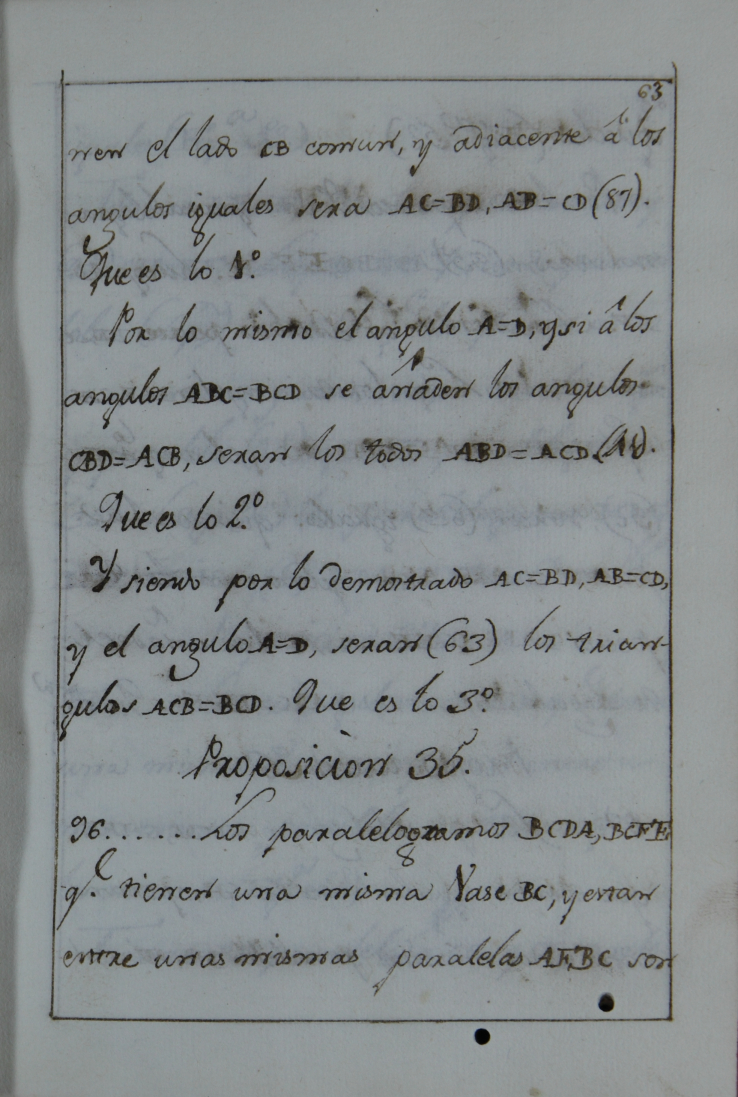 63
nen el lado CB comun, y adiacente â los
angulos iguales sera AC=BD, AB=CD (87).
Que es lo 1º
Por lo mismo el angulo A=D, y si â los
angulos ABC=BCD se añaden los angulos
CBD=ACB, seran los todos ABD=ACD
Que es lo 2º.
Y siendo por lo demostrado AC=BD, AB=CD,
y el angulo A=D, seran (63) los trian-
gulos ACB=BCD. Que es lo 3º
Proposiciòn 35.
96.......Los paralelogramos BCDA, BCFE
q.e tienen una misma Vase BC, y estan
entre unas mismas paralelas AF, BC son